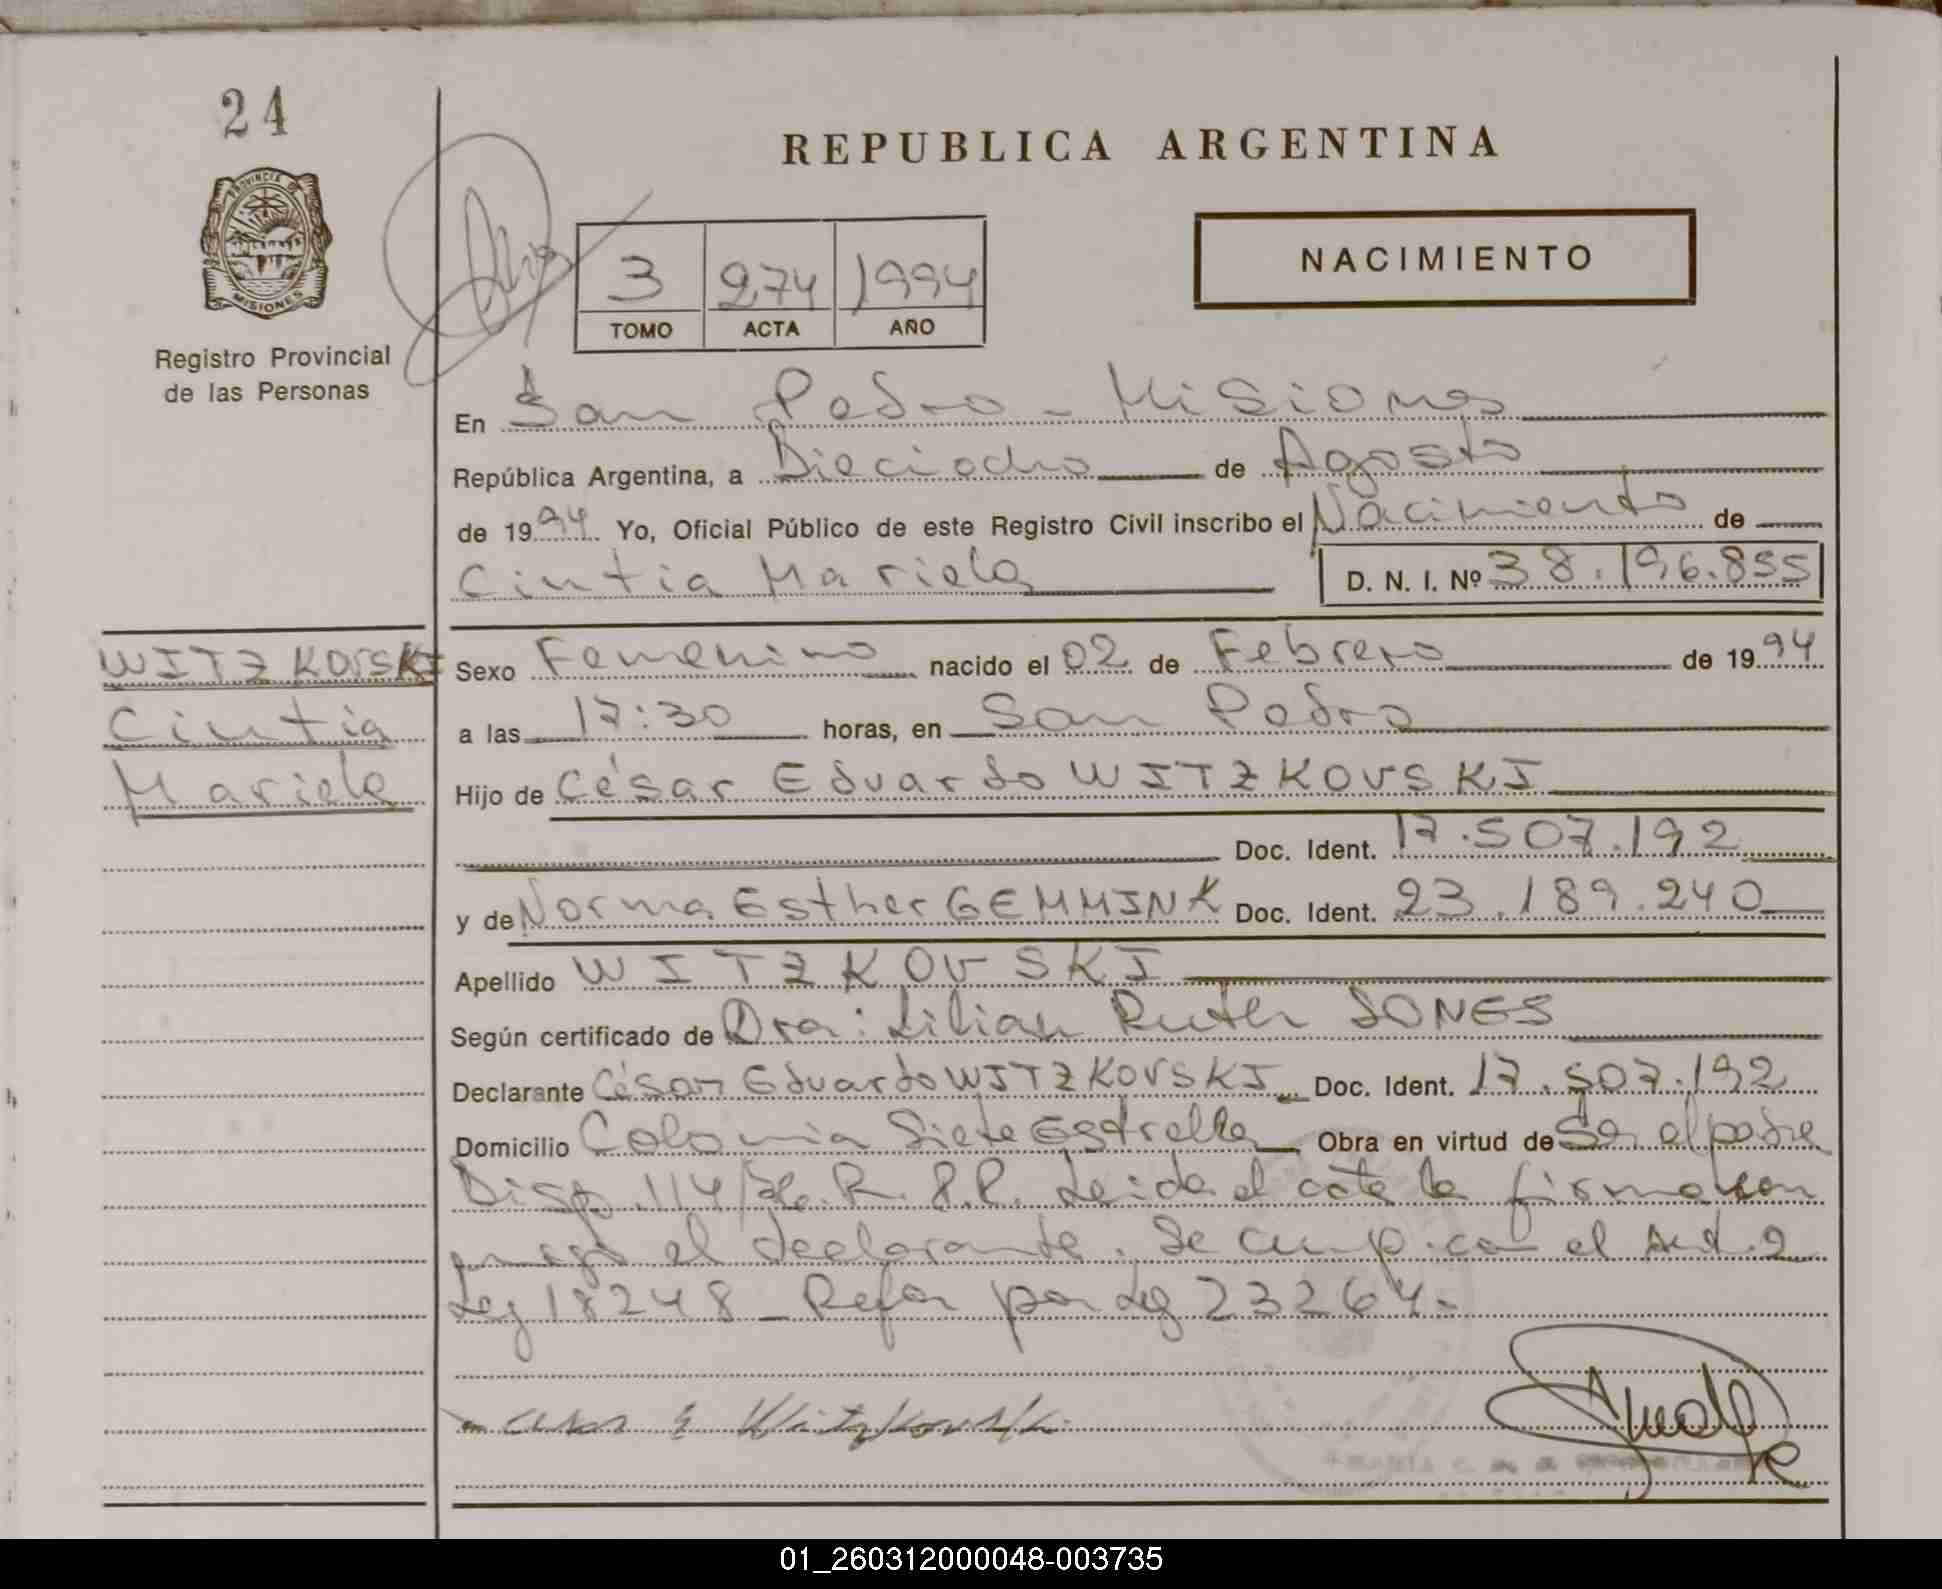 24
REPUBLICA ARGENTINA
PROVINCIA DE
MISIONES
Registro Provincial
de las Personas
3 274 1994
TOMO ACTA AÑO
NACIMIENTO
En San Pedro - Misiones
República Argentina, a Dieciocho de Agosto
de 1994 Yo, Oficial Público de este Registro Civil inscribo el Nacimiento de
Cintia Mariela D. N. I. Nº 38.196.855
WITZKOVSKI
Cintia
Mariela
Sexo Femenino nacido el 02 de Febrero de 1994
a las 17:30 horas, en San Pedro
Hijo de César Eduardo WITZKOVSKI
Doc. Ident. 17.507.192
y de Norma Esther GEMMINK Doc. Ident. 23.189.240
Apellido WITZKOVSKI
Según certificado de Dra: Lilian Ruth JONES
Declarante César Eduardo WITZKOVSKI Doc. Ident. 17.507.192
Domicilio Colonia Siete Estrella Obra en virtud de Ser el padre
Disp. 114/ R.P.P. Leida el acta la firma con
migo el declarante. Se cump. con el Art. 2
Ley 18248 - Refor por Ley 23264.-
Cesar E Witzkovski
01_260312000048-003735